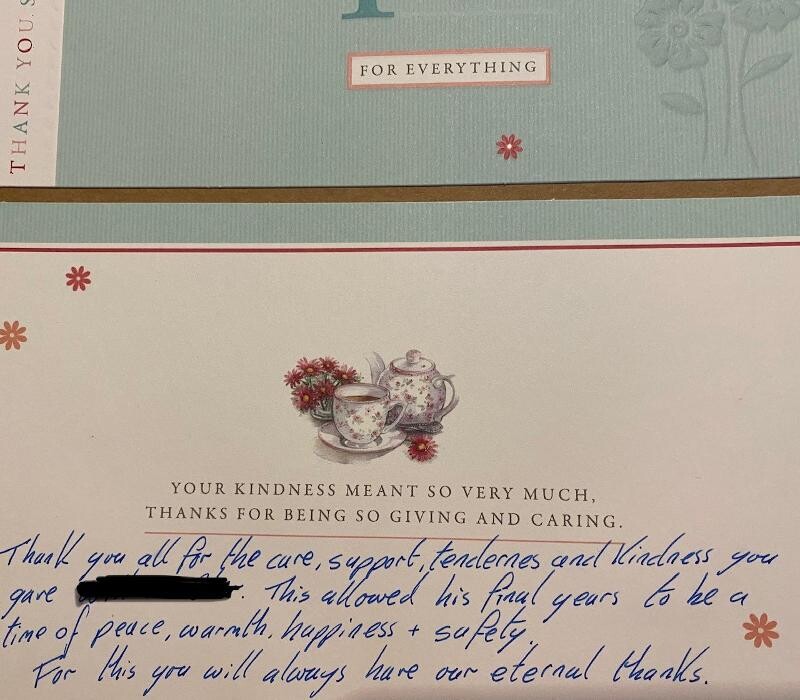 THANK YOU.
FOR EVERYTHING
YOUR KINDNESS MEANT SO VERY MUCH,
THANKS FOR BEING SO GIVING AND CARING.
Thank you all for the care, support, tendernes and kindness you
gave . This allowed his final years to be a
time of peace, warmth, happiness + safety.
For this you will always have our eternal thanks.